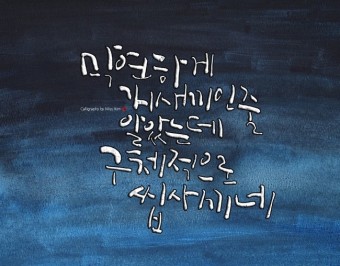 막연하게
개새끼인줄
Calligraphy by
알았는데
구체적으로
씹새끼네